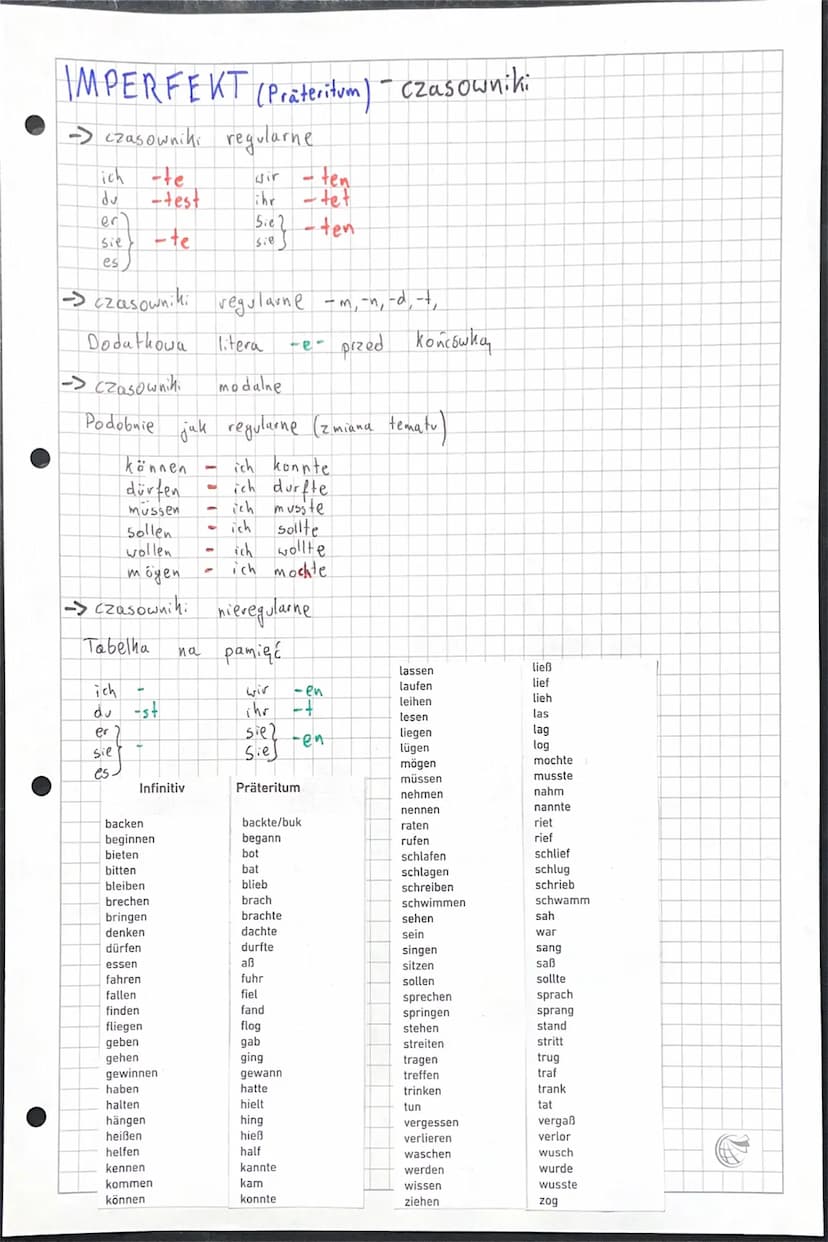 IMPERFEKT (Präteritum) - czasowniki
-> czasowniki regularne
ich -te wir -ten
du -test ihr -tet
er Sie
sie -te sie -ten
es
-> czasowniki regularne -m,-n,-d,-t,
Dodatkowa litera -e- przed końcówką
-> czasowniki modalne
Podobnie jak regularne (zmiana tematu)
können - ich konnte
dürfen - ich durfte
müssen - ich musste
sollen - ich sollte
wollen - ich wollte
mögen - ich mochte
-> czasowniki nieregularne
Tabelka na pamięć
ich - wir -en
du -st ihr -t
er sie
sie - Sie -en
es
Infinitiv Präteritum
backen backte/buk
beginnen begann
bieten bot
bitten bat
bleiben blieb
brechen brach
bringen brachte
denken dachte
dürfen durfte
essen aß
fahren fuhr
fallen fiel
finden fand
fliegen flog
geben gab
gehen ging
gewinnen gewann
haben hatte
halten hielt
hängen hing
heißen hieß
helfen half
kennen kannte
kommen kam
können konnte
lassen ließ
laufen lief
leihen lieh
lesen las
liegen lag
lügen log
mögen mochte
müssen musste
nehmen nahm
nennen nannte
raten riet
rufen rief
schlafen schlief
schlagen schlug
schreiben schrieb
schwimmen schwamm
sehen sah
sein war
singen sang
sitzen saß
sollen sollte
sprechen sprach
springen sprang
stehen stand
streiten stritt
tragen trug
treffen traf
trinken trank
tun tat
vergessen vergaß
verlieren verlor
waschen wusch
werden wurde
wissen wusste
ziehen zog